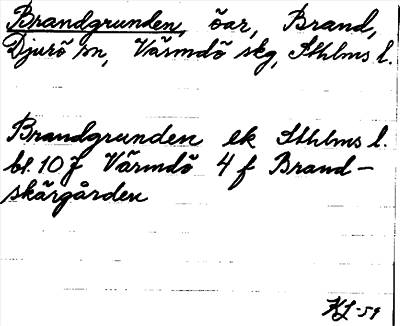 Brandgrunden, öar, Brand,
Djurö sn, Värmdö skg, Sthlms l.
Brandgrunden ek Sthlms l.
bl. 10 j Värmdö 4 f Brand-
skärgården
KL-59